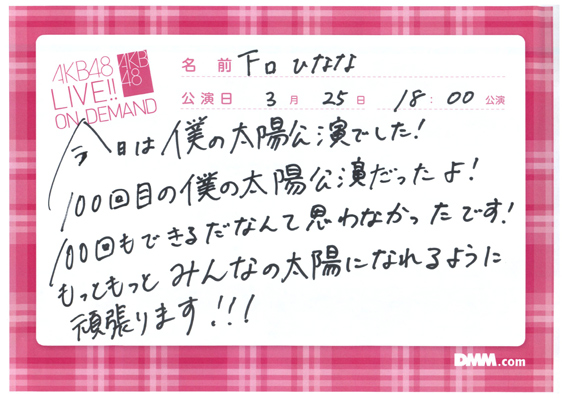 AKB48
LIVE!!
ON DEMAND
AKB
48
名前 下口ひなな
公演日 3月 25日 18:00 公演
今日は僕の太陽公演でした!
100回目の僕の太陽公演だったよ!
100回もできるだなんて思わなかったです!
もっともっとみんなの太陽になれるように
頑張ります!!!
DMM.com